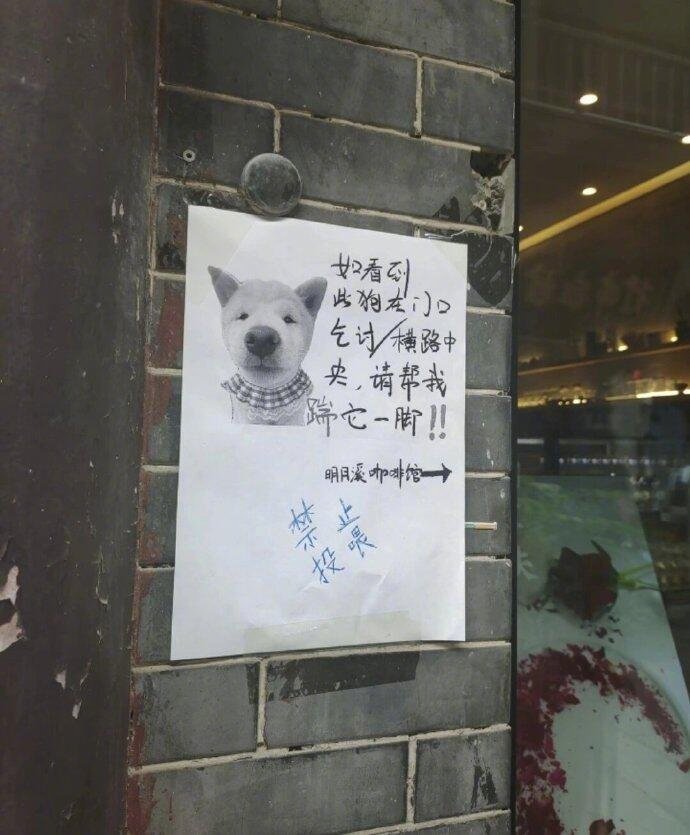 如看到
此狗在门口
乞讨/横路中
央，请帮我
踹它一脚!!
明月溪咖啡馆→
禁止
投喂